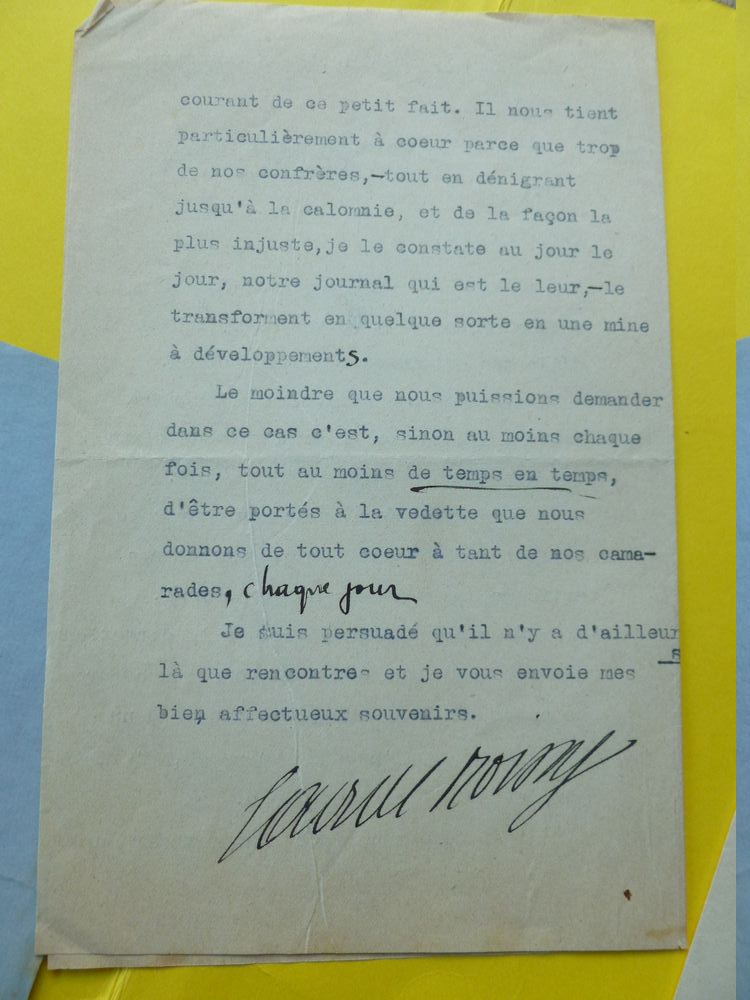 courant de ce petit fait. Il nous tient
particulièrement à coeur parce que trop
de nos confrères,-tout en dénigrant
jusqu'à la calomnie, et de la façon la
plus injuste,je le constate au jour le
jour, notre journal qui est le leur,-le
transforment en quelque sorte en une mine
à développements.
Le moindre que nous puissions demander
dans ce cas c'est, sinon au moins chaque
fois, tout au moins de temps en temps,
d'être portés à la vedette que nous
donnons de tout coeur à tant de nos cama-
rades, chaque jour
Je suis persuadé qu'il n'y a d'ailleur
s
là que rencontres et je vous envoie mes
bien affectueux souvenirs.